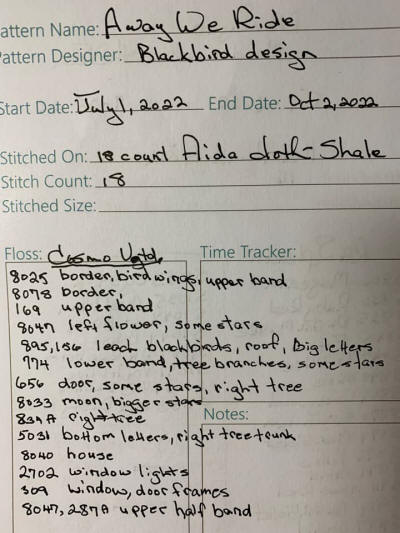 attern Name: Away We Ride
Pattern Designer: Blackbird design
Start Date: July 1, 2022 End Date: Oct 2, 2022
Stitched On: 18 count Aida cloth - Shale
Stitch Count: 18
Stitched Size:
Floss: Cosmo Vgtd. Time Tracker:
8025 border, bird wings, upper band
8078 border,
169 upper band
8047 left flower, some stars
895, 156 leach blackbirds, roof, Big letters
774 lower band, tree branches, some stars
656 door, some stars, right tree
8033 moon, bigger stars
Notes:
834A right tree
5031 bottom letters, right tree trunk
8040 house
2702 window lights
309 window, door frames
8047, 287A upper half band